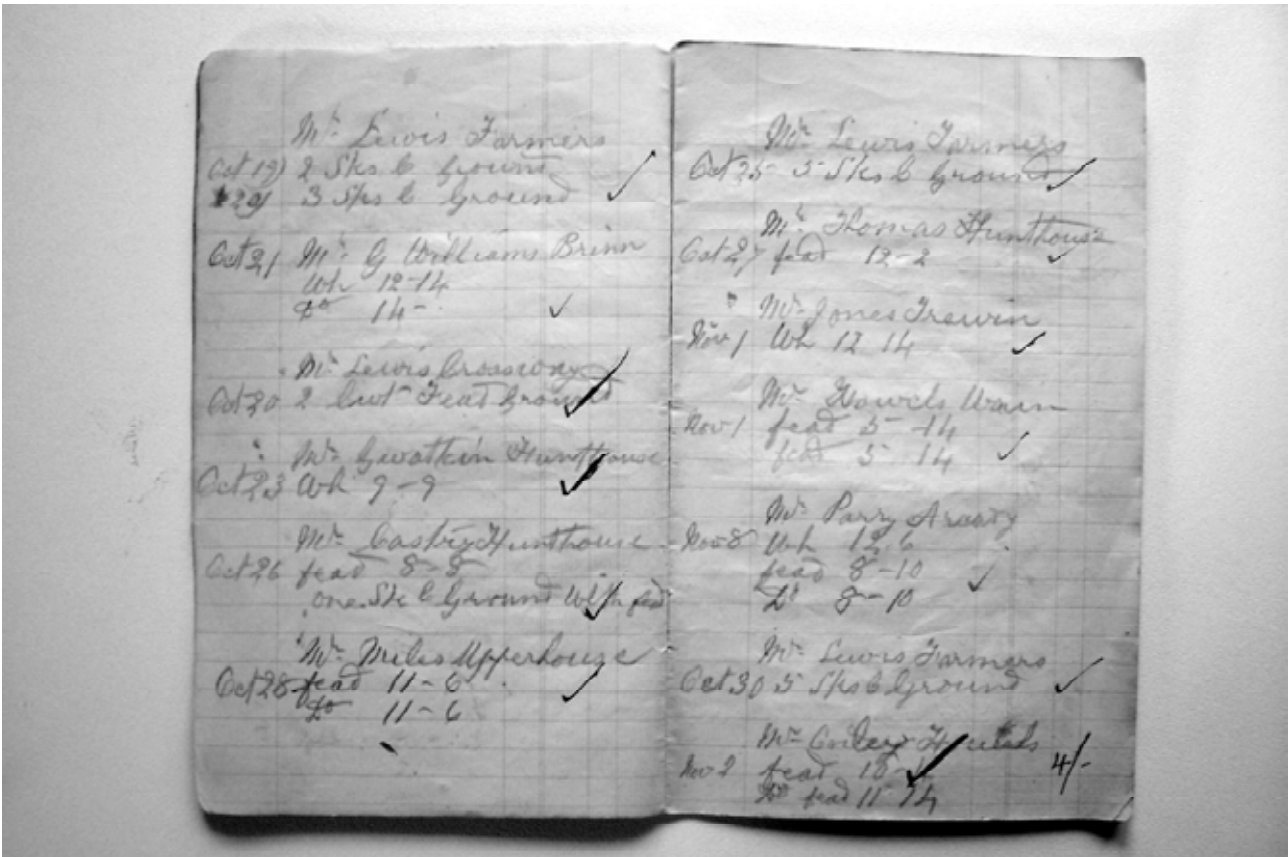 Mr Lewis Farmers
Oct 19 2 Sks C Ground
29 3 Sks C Ground
Oct 21 Mr G Williams Brinn
Wh 12-14
Do 14-
Mr Lewis
Oct 20 2 Cwt Fead Ground
Mr Gwatkin Hunthouse
Oct 23 Wh 9-9
Mr Hunthouse
Oct 26 fead 8-8
one Sk C Ground With fead
Mr Miles Upperhouse
Oct 28 fead 11-6
Do 11-6
Mr Lewis Farmers
Oct 25 5 Sks C Ground
Mr Thomas Hunthouse
Oct 27 fead 12-2
Mr Jones Trewin
Nov 1 Wh 12 14
Mr Howels Wain
Nov 1 fead 5-14
fead 5 14
Mr Parry Arcady
Nov 8 Wh 12 6
fead 8-10
Do 8-10
Mr Lewis Farmers
Oct 30 5 Sks C Ground
Mr
Nov 2 fead 4/-
Do fead 11 14